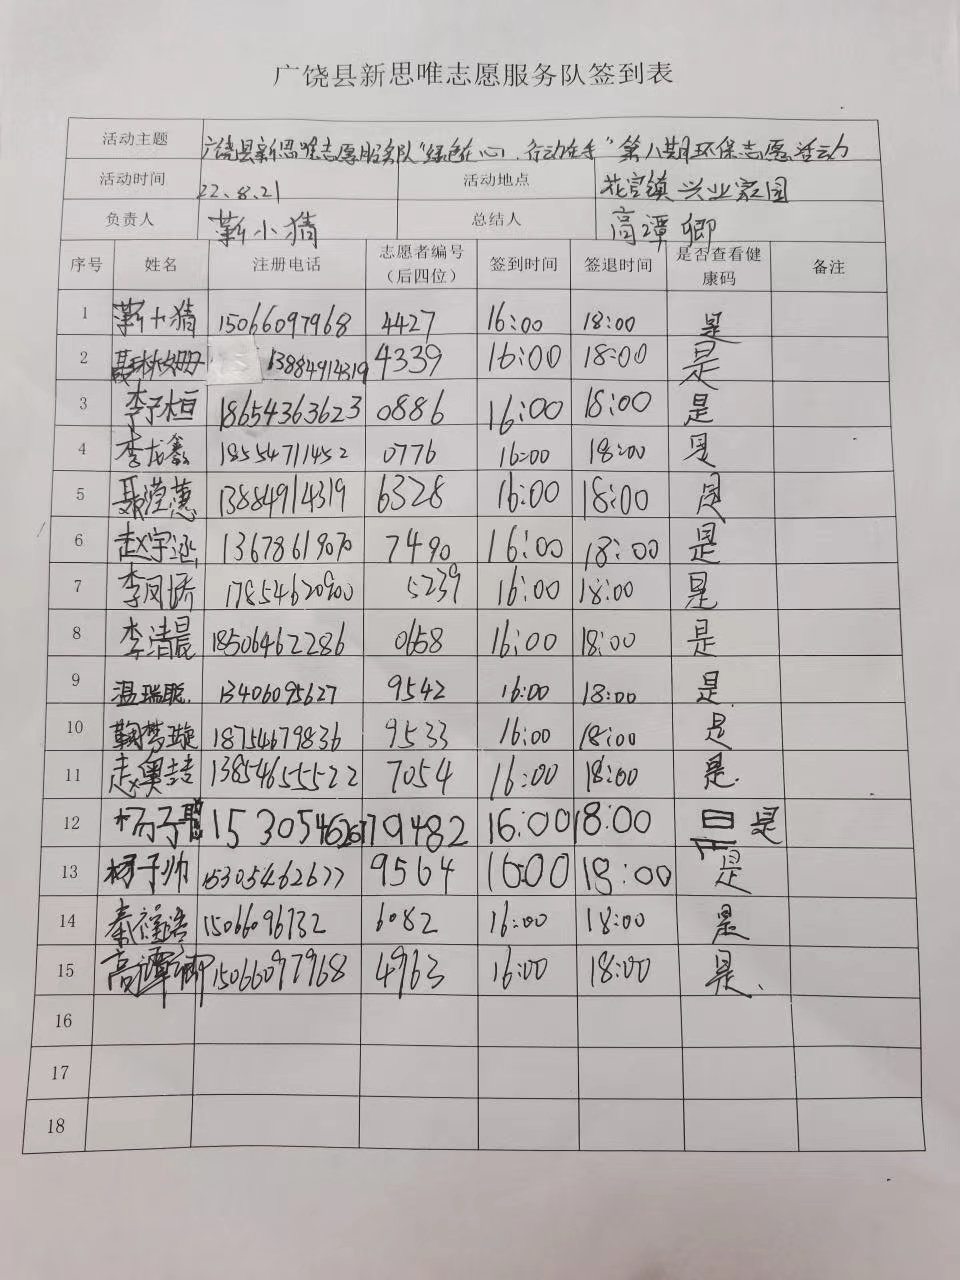 广饶县新思唯志愿服务队签到表
活动主题 广饶县新思唯志愿服务队“绿色在心、行动在手”第八期环保志愿活动
活动时间 22.8.21 活动地点 花官镇兴业家园
负责人 靳小猜 总结人 高谭卿
序号 姓名 注册电话 志愿者编号（后四位） 签到时间 签退时间 是否查看健康码 备注
1 靳小猜 15066097968 4427 16:00 18:00 是
2 13884914319 4339 16:00 18:00 是
3 李子桓 18654363623 0886 16:00 18:00 是
4 李龙鑫 18554711452 0776 16:00 18:00 是
5 聂滢蕙 13884914319 6328 16:00 18:00 是
6 赵宇涵 13678619070 7490 16:00 18:00 是
7 李凤娇 17854620900 5239 16:00 18:00 是
8 李清晨 18506462286 0658 16:00 18:00 是
9 温瑞聪 13406095627 9542 16:00 18:00 是
10 鞠梦璇 18754679836 9533 16:00 18:00 是
11 赵奥喆 13854655522 7054 16:00 18:00 是.
12 杨子聪 15305462677 9482 16:00 18:00 是
13 杨子帅 15305462677 9564 16:00 18:00 是
14 秦福浩 15066096732 6082 16:00 18:00 是
15 高谭卿 15066097968 4963 16:00 18:00 是.
16
17
18